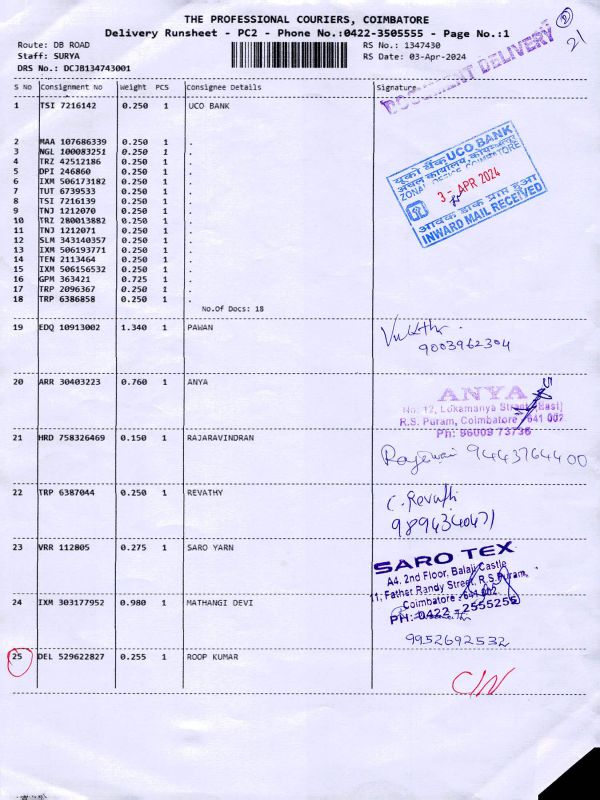 THE PROFESSIONAL COURIERS, COIMBATORE
Delivery Runsheet - PC2 - Phone No.:0422-3505555 - Page No.:1
Route: DB ROAD
Staff: SURYA
DRS No.: DCJB134743001
RS No.: 1347430
RS Date: 03-Apr-2024
DOCUMENT DELIVERY
21
S No Consignment No Weight PCS Consignee Details Signature
1 TSI 7216142 0.250 1 UCO BANK
2 MAA 107686339 0.250 1 .
3 NGL 100083251 0.250 1 .
4 TRZ 42512186 0.250 1 .
5 DPI 246860 0.250 1 .
6 IXM 506173182 0.250 1 .
7 TUT 6739533 0.250 1 .
8 TSI 7216139 0.250 1 .
9 TNJ 1212070 0.250 1 .
10 TRZ 280013882 0.250 1 .
11 TNJ 1212071 0.250 1 .
12 SLM 343140357 0.250 1 .
13 IXM 506193771 0.250 1 .
14 TEN 2113464 0.250 1 .
15 IXM 506156532 0.250 1 .
16 GPM 363421 0.725 1 .
17 TRP 2096367 0.250 1 .
18 TRP 6386858 0.250 1 .
No.Of Docs: 18
यूको बैंक UCO BANK
अंचल कार्यालय, कोयम्बतूर
ZONAL OFFICE COIMBATORE
3 - APR 2024
आवक डाक प्राप्त हुआ
INWARD MAIL RECEIVED
19 EDQ 10913002 1.340 1 PAWAN
9003962304
20 ARR 30403223 0.760 1 ANYA
ANYA
No: 12, Lokamanya Street (East)
R.S. Puram, Coimbatore - 641 002
Ph: 96009 73736
21 HRD 758326469 0.150 1 RAJARAVINDRAN
9443764400
22 TRP 6387044 0.250 1 REVATHY
C. Revathi
9894340471
23 VRR 112805 0.275 1 SARO YARN
SARO TEX
A4, 2nd Floor, Balaji Castle
11, Father Randy Street, R.S.Puram,
Coimbatore - 641 002
PH: 0422 - 2555255
24 IXM 303177952 0.980 1 MATHANGI DEVI
9952692532
25 DEL 529622827 0.255 1 ROOP KUMAR
C/N